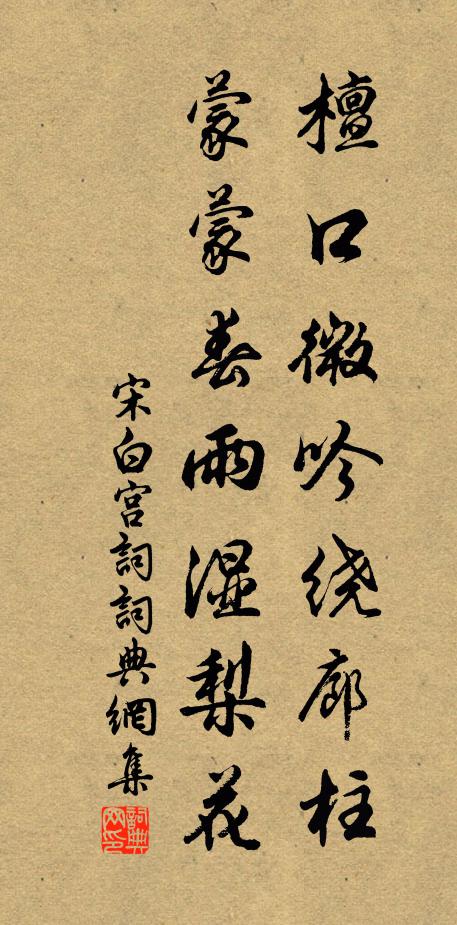 檀口微吟绕廊柱
蒙蒙春雨湿梨花
宋白宫詞詞典網集
詞典网印